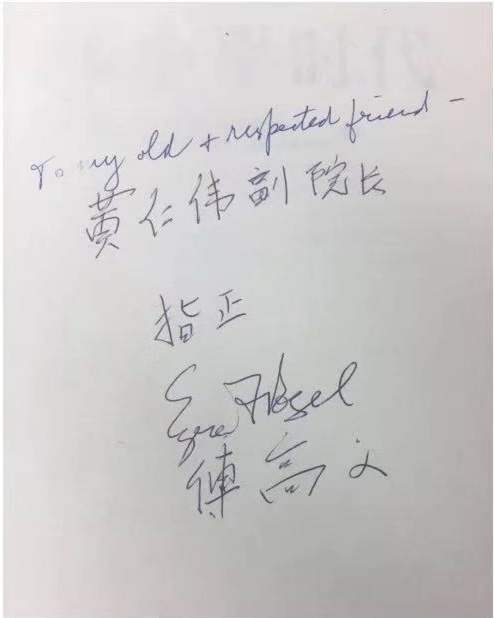 To my old + respected friend –
黄仁伟副院长
指正
Ezra F Vogel
傅高义